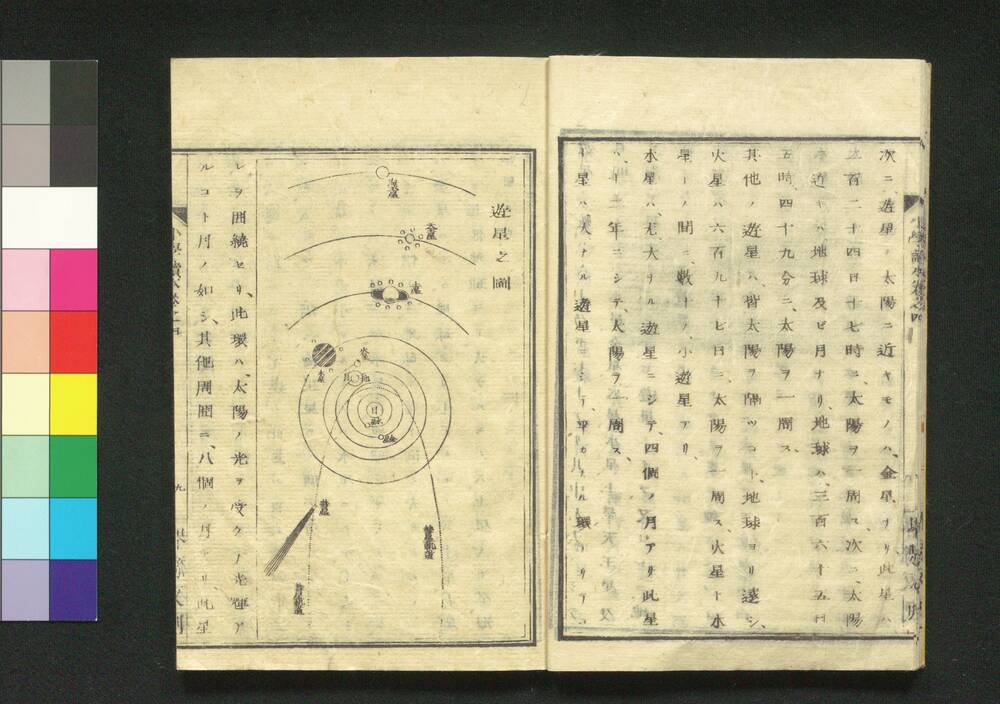 次ニ、遊星ノ太陽ニ近キモノハ、金星ナリ、此星ハ
二百二十四日十七時ニ、太陽ヲ一周ス、次ニ、太陽
ニ近キハ、地球及ビ月ナリ、地球ハ、三百六十五日
五時、四十九分ニ、太陽ヲ一周ス、
其他ノ遊星ハ、皆太陽ヲ隔ツコト、地球ヨリ遠シ、
火星ハ六百九十七日ニ、太陽ヲ一周ス、火星ト木
星トノ間ニ、數十ノ小遊星アリ、
木星ハ、尤大ナル遊星ニシテ、四個ノ月アリ、此星
ハ、十二年ニシテ、太陽ヲ一周ス、
土星ハ、大ナル遊星ニシテ、平カナル環アリテ、コ
遊星之圖
海王星
天王星
土星
木星
火星
地
月
日
彗星
彗星軌道
彗星軌道
レヲ囲繞セリ、此環ハ、太陽ノ光ヲ受ケ、光輝ア
ルコト月ノ如シ、其他周囲ニ、八個ノ月アリ、此星
九